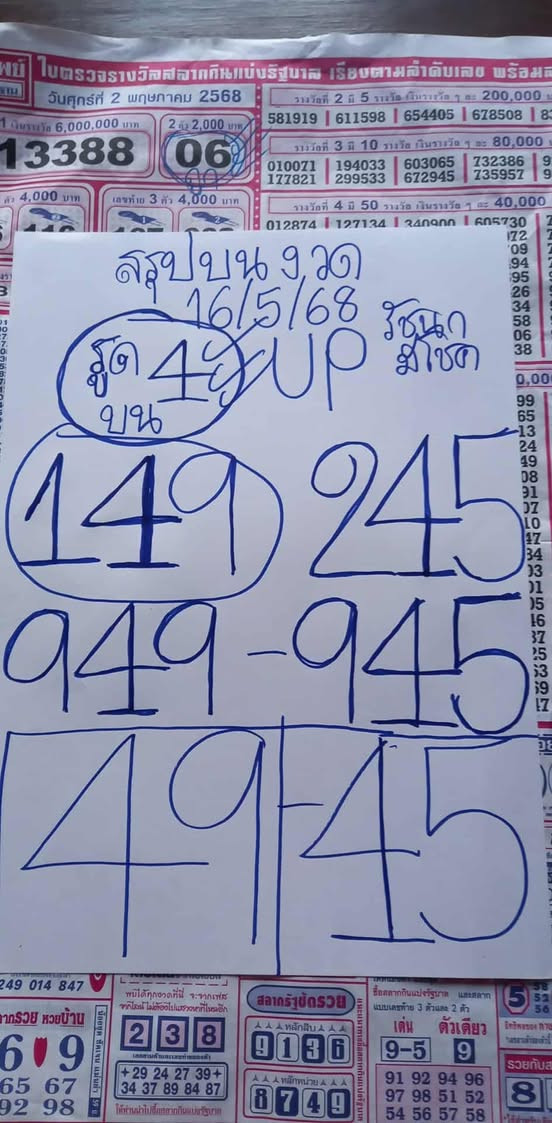 ใบตรวจรางวัลสลากกินแบ่งรัฐบาล เรียงตามลำดับเลข พร้อม
วันศุกร์ที่ 2 พฤษภาคม 2568
รางวัลที่ 2 มี 5 รางวัล เงินรางวัล ๆ ละ 200,000
581919 | 611598 | 654405 | 678508
1 เงิน 6,000,000 บาท
2 ตัว 2,000 บาท
13388
06
รางวัลที่ 3 มี 10 รางวัล เงินรางวัล ๆ ละ 80,000
010071 | 194033 | 603065 | 732386
177821 | 299533 | 672945 | 735957
4,000 บาท
เลขท้าย 3 ตัว 4,000 บาท
รางวัลที่ 4 มี 50 รางวัล เงินรางวัล ๆ ละ 40,000
012874 | 127134 | 340900 | 605730
สรุปบนงวด
16/5/68
รัชนก
มีโชค
รูด 4
บน
UP
149 245
949 - 945
49 - 45
249 014 847
รวย หวยบ้าน
6 9
65 67
92 98
238
+29 24 27 39+
34 37 89 84 87
สลากรัฐชักรวย
หลักสิบ
9136
หลักหน่วย
8749
แบบเลขท้าย 3 ตัวและ 2 ตัว
เด่น ตัวเดียว
9-5 9
91 92 94 96
97 98 51 52
54 56 57 58
5
8